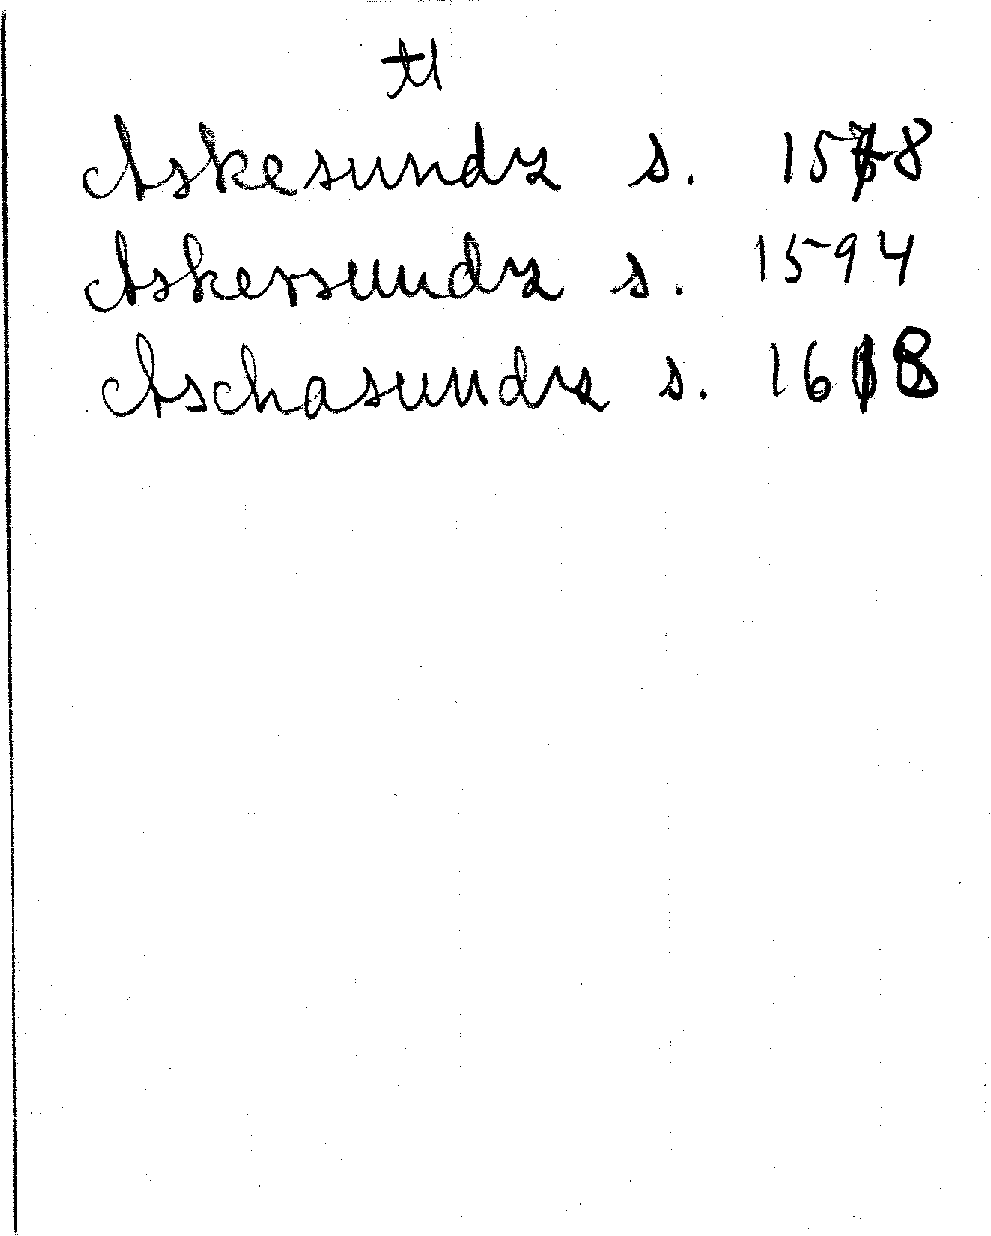 Askesundz s.
Askersundz s. 1594
Aschasundz s. 1618